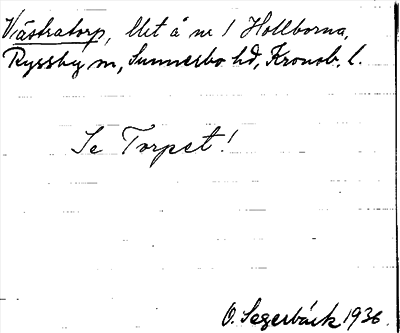 Västratorp, lht å nr 1 Hollborna,
Ryssby sn, Sunnerbo hd, Kronob. l.
Se Torpet!
O. Segerbäck 1936.